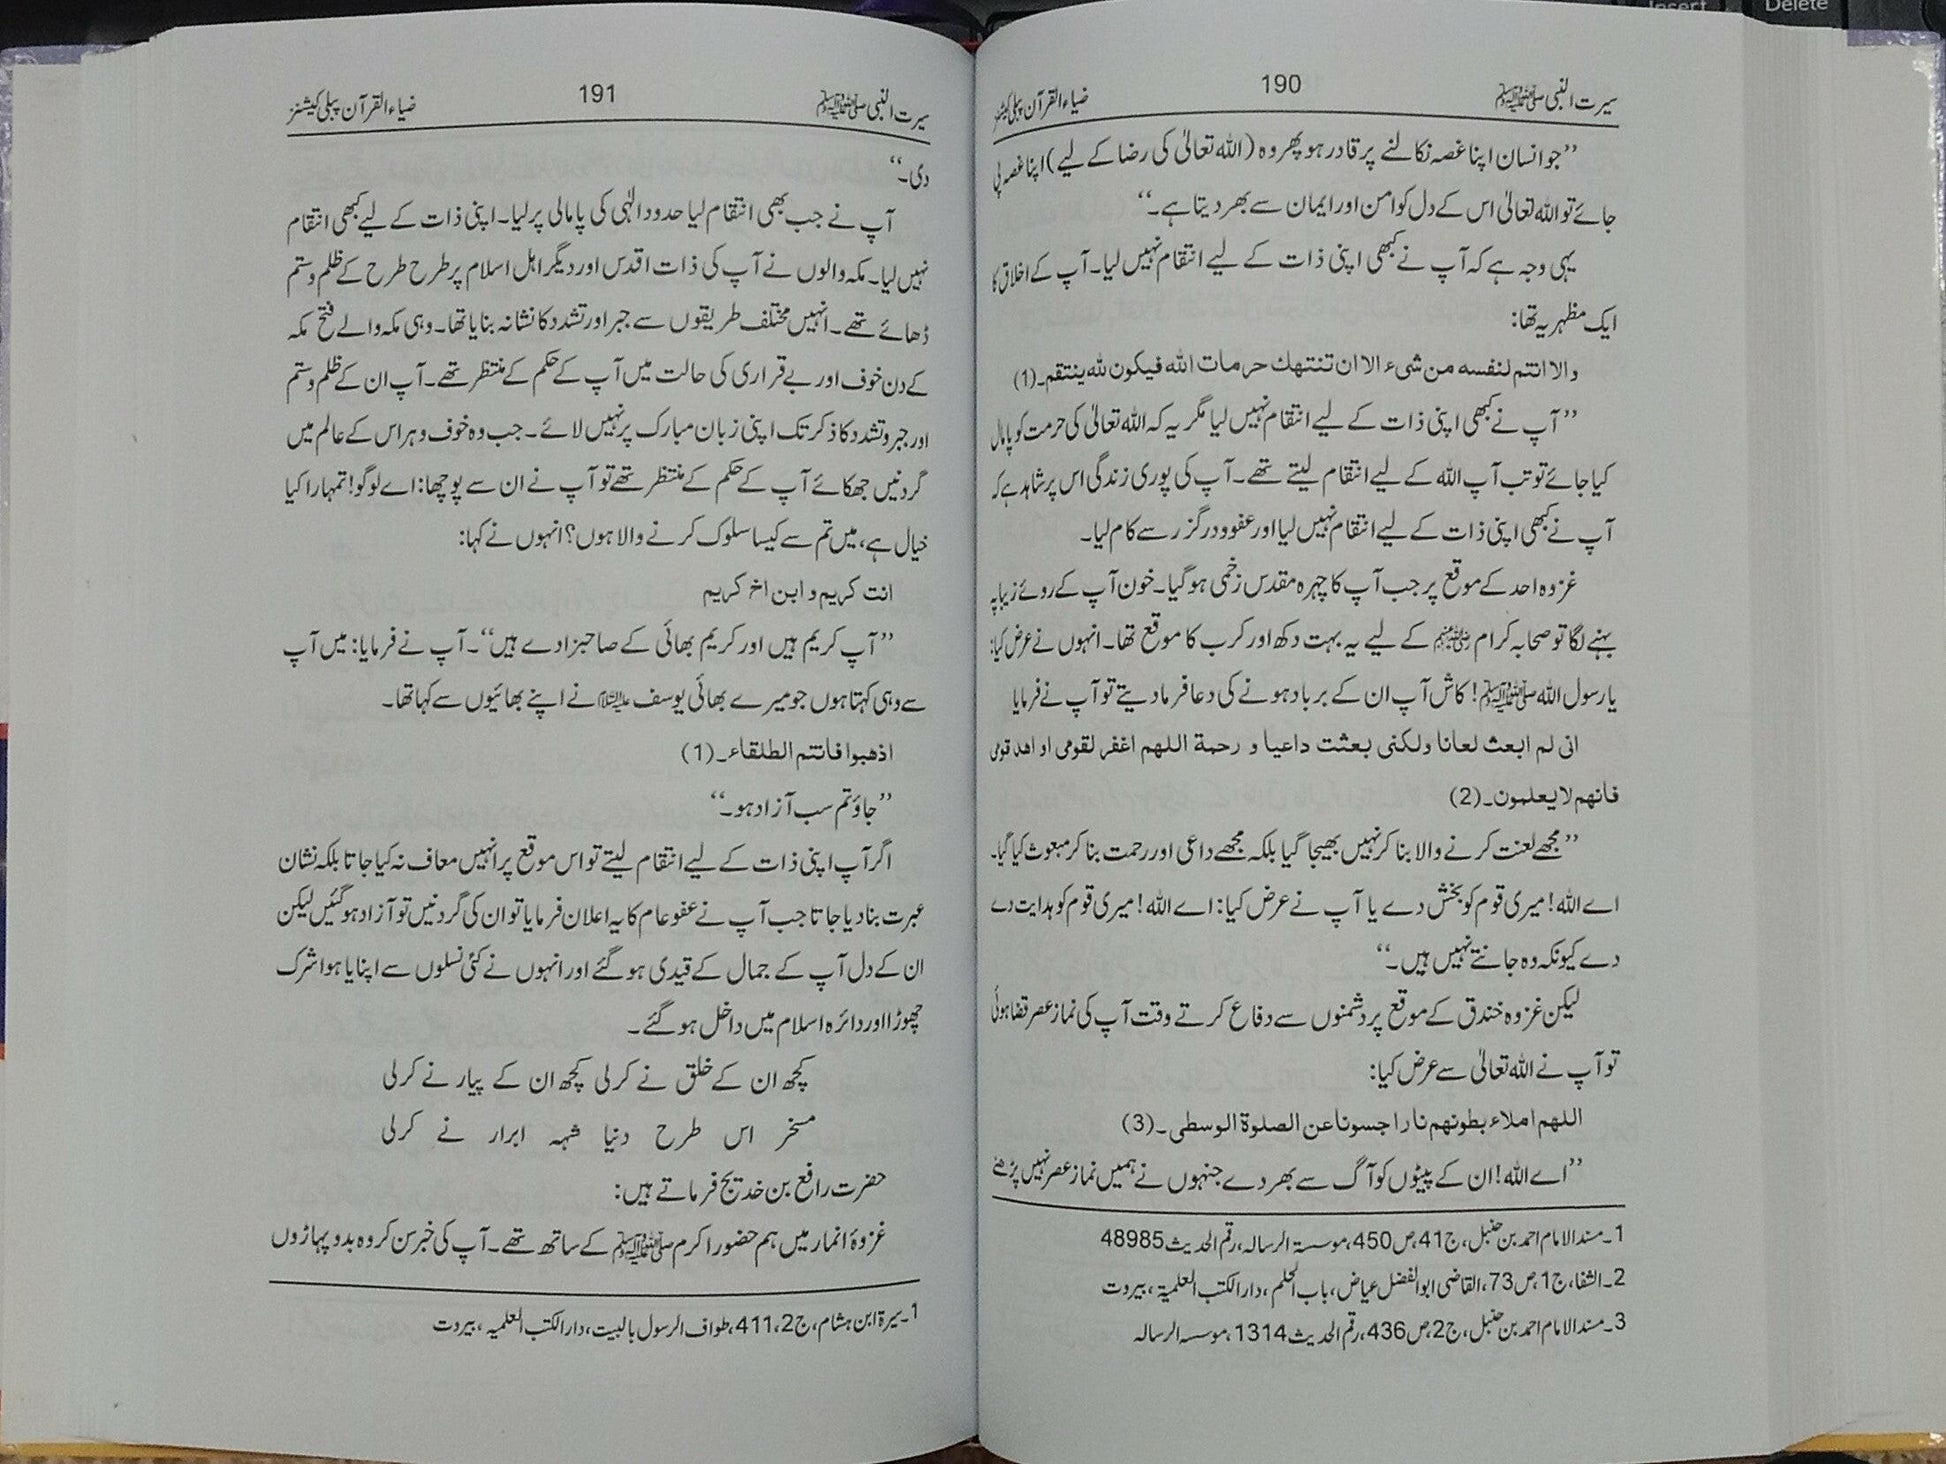 سیرت النبی ﷺ 190 ضیاء القرآن پبلی کیشنز
’’جو انسان اپنا غصہ نکالنے پر قادر ہو پھر وہ (اللہ تعالیٰ کی رضا کے لیے) اپنا غصہ پی
جائے تو اللہ تعالیٰ اس کے دل کو امن اور ایمان سے بھر دیتا ہے۔‘‘
یہی وجہ ہے کہ آپ نے کبھی اپنی ذات کے لیے انتقام نہیں لیا۔ آپ کے اخلاق کا
ایک مظہر یہ تھا:
والا انتم لنفسه من شیء الا ان تنتهك حرمات الله فیکون لله ینتقم۔(1)
’’آپ نے کبھی اپنی ذات کے لیے انتقام نہیں لیا مگر یہ کہ اللہ تعالیٰ کی حرمت کو پامال
کیا جائے تو تب آپ اللہ کے لیے انتقام لیتے تھے۔ آپ کی پوری زندگی اس پر شاہد ہے کہ
آپ نے کبھی اپنی ذات کے لیے انتقام نہیں لیا اور عفو و درگزر سے کام لیا۔
غزوہ احد کے موقع پر جب آپ کا چہرہ مقدس زخمی ہو گیا۔ خون آپ کے روئے زیبا پہ
بہنے لگا تو صحابہ کرام رضی اللہ عنہم کے لیے یہ بہت دکھ اور کرب کا موقع تھا۔ انہوں نے عرض کیا:
یا رسول اللہ ﷺ! کاش آپ ان کے برباد ہونے کی دعا فرما دیتے تو آپ نے فرمایا
انی لم ابعث لعانا ولکنی بعثت داعیا و رحمة اللهم اغفر لقومی او اهد قومی
فانهم لا یعلمون۔(2)
’’مجھے لعنت کرنے والا بنا کر نہیں بھیجا گیا بلکہ مجھے داعی اور رحمت بنا کر مبعوث کیا گیا۔
اے اللہ! میری قوم کو بخش دے یا آپ نے عرض کیا: اے اللہ! میری قوم کو ہدایت دے
دے کیونکہ وہ جانتے نہیں ہیں۔‘‘
لیکن غزوہ خندق کے موقع پر دشمنوں سے دفاع کرتے وقت آپ کی نماز عصر قضا ہوئی
تو آپ نے اللہ تعالیٰ سے عرض کیا:
اللهم املاء بطونهم نارا جسونا عن الصلوة الوسطی۔(3)
’’اے اللہ! ان کے پیٹوں کو آگ سے بھر دے جنہوں نے ہمیں نماز عصر نہیں پڑھنے
1۔ مسند الامام احمد بن حنبل، ج41، ص450، موسسۃ الرسالہ، رقم الحدیث 48985
2۔ الشفا، ج1، ص73، القاضی ابو الفضل عیاض، باب الحلم، دار الکتب العلمیۃ، بیروت
3۔ مسند الامام احمد بن حنبل، ج2، ص436، رقم الحدیث 1314، موسسہ الرسالہ
سیرت النبی ﷺ 191 ضیاء القرآن پبلی کیشنز
دی۔‘‘
آپ نے جب بھی انتقام لیا حدود الٰہی کی پامالی پر لیا۔ اپنی ذات کے لیے کبھی انتقام
نہیں لیا۔ مکہ والوں نے آپ کی ذات اقدس اور دیگر اہل اسلام پر طرح طرح کے ظلم و ستم
ڈھائے تھے۔ انہیں مختلف طریقوں سے جبر اور تشدد کا نشانہ بنایا تھا۔ وہی مکہ والے فتح مکہ
کے دن خوف اور بے قراری کی حالت میں آپ کے حکم کے منتظر تھے۔ آپ ان کے ظلم و ستم
اور جبر و تشدد کا ذکر تک اپنی زبان مبارک پر نہیں لائے۔ جب وہ خوف و ہراس کے عالم میں
گردنیں جھکائے آپ کے حکم کے منتظر تھے تو آپ نے ان سے پوچھا: اے لوگو! تمہارا کیا
خیال ہے، میں تم سے کیسا سلوک کرنے والا ہوں؟ انہوں نے کہا:
انت کریم و ابن اخ کریم
’’آپ کریم ہیں اور کریم بھائی کے صاحبزادے ہیں‘‘۔ آپ نے فرمایا: میں آپ
سے وہی کہتا ہوں جو میرے بھائی یوسف علیہ السلام نے اپنے بھائیوں سے کہا تھا۔
اذهبوا فانتم الطلقاء۔(1)
’’جاؤ تم سب آزاد ہو۔‘‘
اگر آپ اپنی ذات کے لیے انتقام لیتے تو اس موقع پر انہیں معاف نہ کیا جاتا بلکہ نشان
عبرت بنا دیا جاتا جب آپ نے عفو عام کا یہ اعلان فرمایا تو ان کی گردنیں تو آزاد ہو گئیں لیکن
ان کے دل آپ کے جمال کے قیدی ہو گئے اور انہوں نے کئی نسلوں سے اپنایا ہوا شرک
چھوڑا اور دائرہ اسلام میں داخل ہو گئے۔
کچھ ان کے خلق نے کر لی کچھ ان کے پیار نے کر لی
مسخر اس طرح دنیا شہہ ابرار نے کر لی
حضرت رافع بن خدیج فرماتے ہیں:
غزوۂ انمار میں ہم حضور اکرم ﷺ کے ساتھ تھے۔ آپ کی خبر سن کر وہ بدو پہاڑوں
1۔ سیرۃ ابن ہشام، ج2، 411، طواف الرسول بالبیت، دار الکتب العلمیہ، بیروت
Insert
Delete